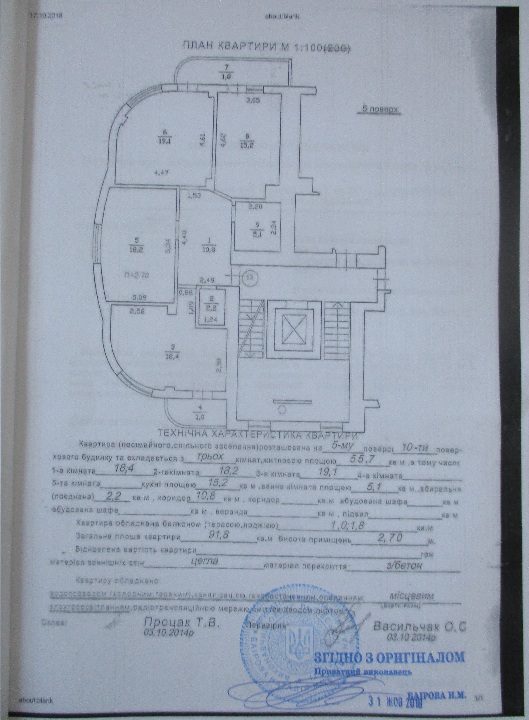 17.10.2018 about:blank
ПЛАН КВАРТИРИ М 1:100(200)
7
1,0
5 поверх
3,05
6
19,1
4,61
4,62
8
15,2
4,47
1,50
2,28
9
5,1
2,24
5
18,2
4,40
1
10,8
h-2.70
2,49
3,09
2,58
0,98
2
2,2
1,24
3
18,4
4
1,0
ТЕХНІЧНА ХАРАКТЕРИСТИКА КВАРТИРИ
Квартира розташована на 5-му поверсі 10-ти повер-
хового будинку та складається з трьох кімнат, житловою площею 55,7 кв.м, в тому числі:
1-а кімната 18,4 2-га кімната 18,2 3-я кімната 19,1 4-а кімната
5-та кімната кухні площею 15,2 кв.м, ванна кімната площею 5,1 кв.м, вбиральня
(поєднана) 2,2 кв.м, коридор 10,8 кв.м, коридор кв.м вбудована шафа кв.м
вбудована шафа кв.м, веранда кв.м, підвал кв.м
Квартира обладнана балконом (терасою, лоджією) 1,0;1,8 кв.м
Загальна площа квартири 91,8 кв.м висота приміщень 2,70 м.
Відновлена вартість квартири грн
матеріал зовнішніх стін цегла матеріал перекриття з/бетон
Квартиру обладнано:
місцевим
Склав: Процак Т.В. Перевірив: Васильчак О.С
03.10.2014р 03.10.2014р
ЗГІДНО З ОРИГІНАЛОМ
Приватний виконавець
БАІРОВА Н.М.
31 ЖОВ 2018
about:blank 1/1